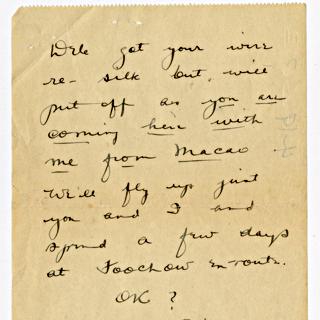 Well got your wire
re- silk but, will
put off as you are
coming here with
me from Macao.
We'll fly up just
you and I and
spend a few days
at Foochow en-route.
OK?